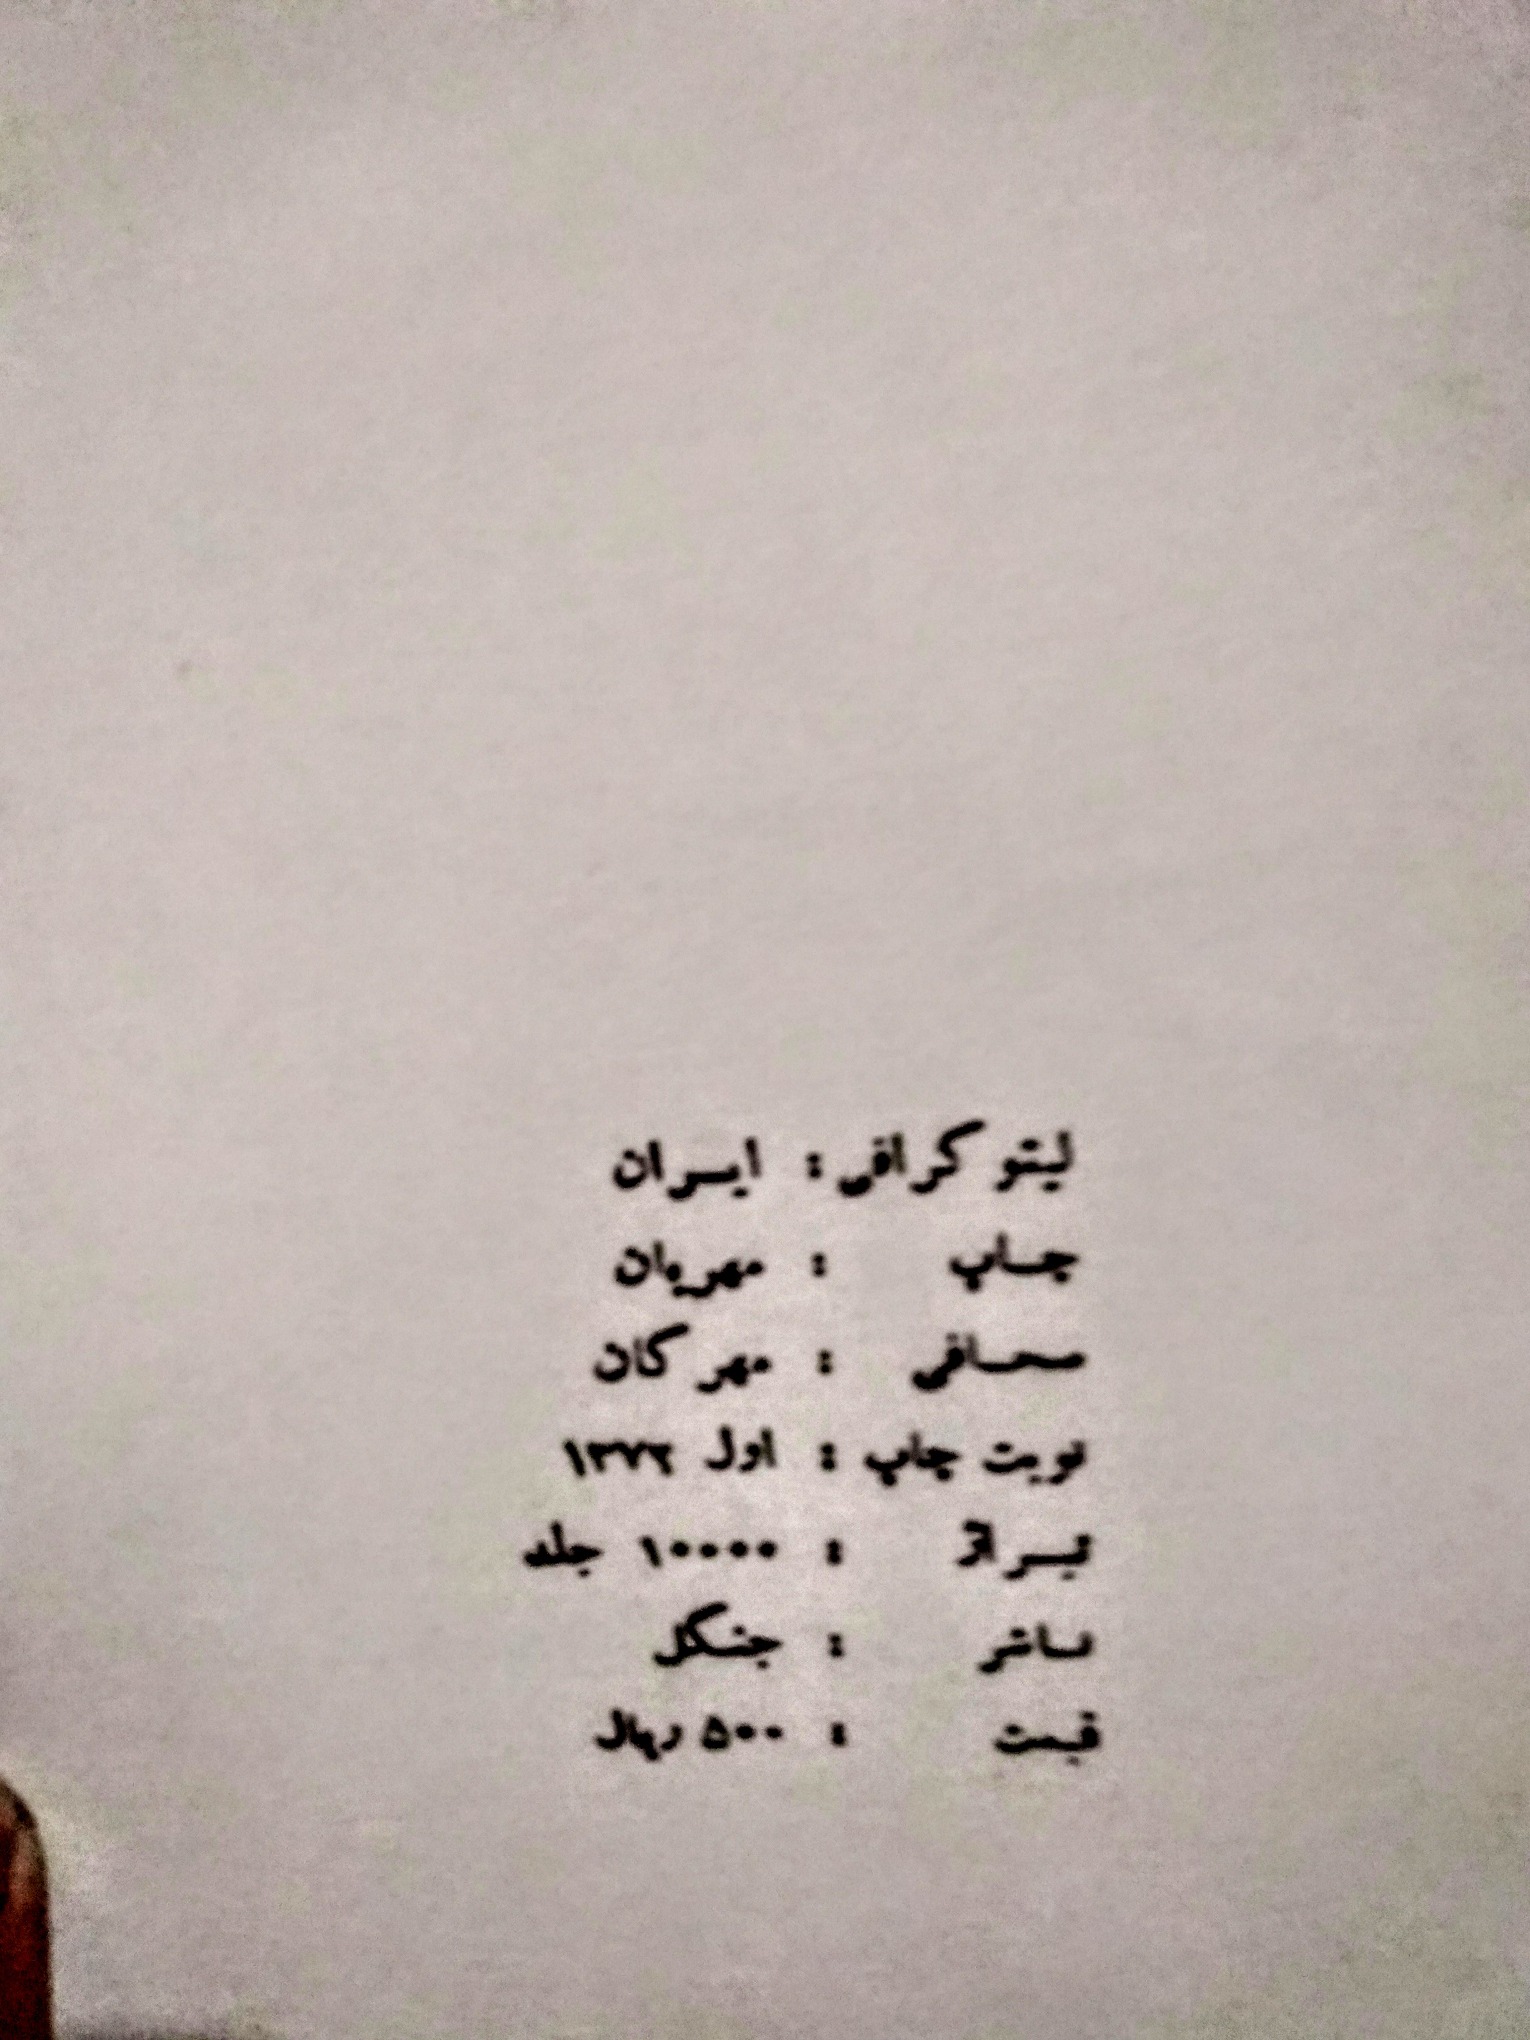 لیتو گرافی : ایـران
چـاپ : مهریان
صحـافی : مهر گان
نوبت چاپ : اول ۱۳۷۲
تیـراژ : ۱۰۰۰۰ جلد
نـاشر : جنگل
قیمت : ۵۰۰ ریال